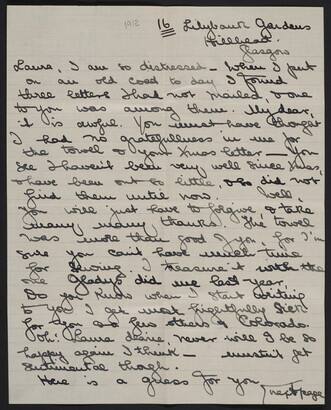 1912
16 Lilybank Gardens
Hillhead
Glasgow
Laura, I am so distressed – when I put
on an old coat to day I found
three letters I had not mailed & one
to you was among them. My dear,
it is awful. You must have thought
I had no gratefullness in me for
the towel & your Xmas letter – You
see I haven't been very well since Xmas,
& have been out so little, & so did not
find them until now. Well,
you will just have to forgive, & take
many many thanks. The towel
was more than good of you, for I'm
sure you can't have much time
for sewing. I treasure it with the
one Gladys did me last year.
Do you know when I start writing
to you I get most frightfully sick
for you and Gus & others & Colorado.
Oh! Laura dearie, never will I be so
happy again I think – mustn't get
sentimental though.
Here is a guess for you
next page